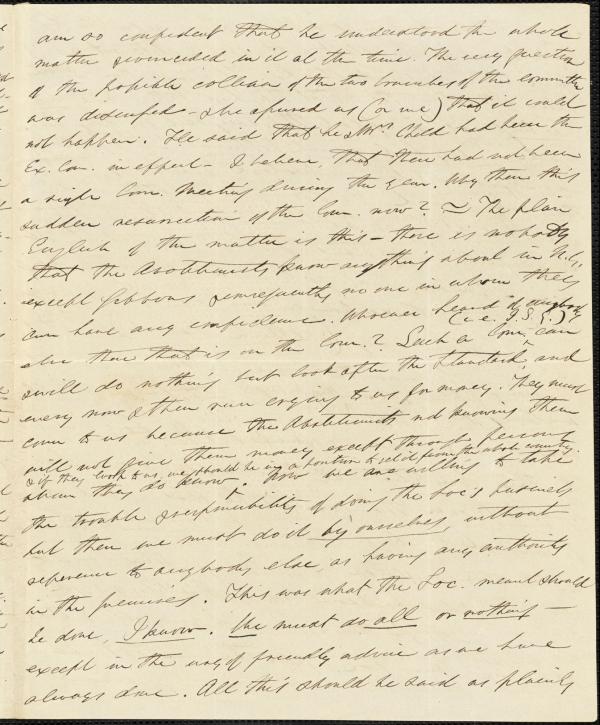 am so confident that he understood the whole
matter & concurred in it at the time. The very question
of the possible collision of the two branches of the committee
was discussed - & he assured us (or me) that it could
not happen. He said that he & Mrs. Child had been the
Ex. Com. in effect - I believe, that there had not been
a single Com. Meeting during the year. Why then this
sudden resurrection of the Com. now? The plain
English of the matter is this - there is nobody
that the Abolitionists know anything about in N.Y.,
except Gibbons & consequently no one in whom they
can have any confidence. Whoever heard of anybody
(i.e. J.S.G.)
else than that is on the Com.? Such a Com. can
& will do nothing but look after the Standard, and
every now & then run crying to us for money. They must
come to us because the Abolitionists not knowing them
will not give them money except through persons
& if they look to us we should be in a position to get it from the whole country.
whom they do know. Now we are willing to take
the trouble & responsibility of doing the Soc's business
but then we must do it by ourselves, without
reference to anybody else as having any authority
in the premises. This was what the Soc. meant should
be done, I know. We must do all or nothing -
except in the way of friendly advice as we have
always done. All this should be said as plainly